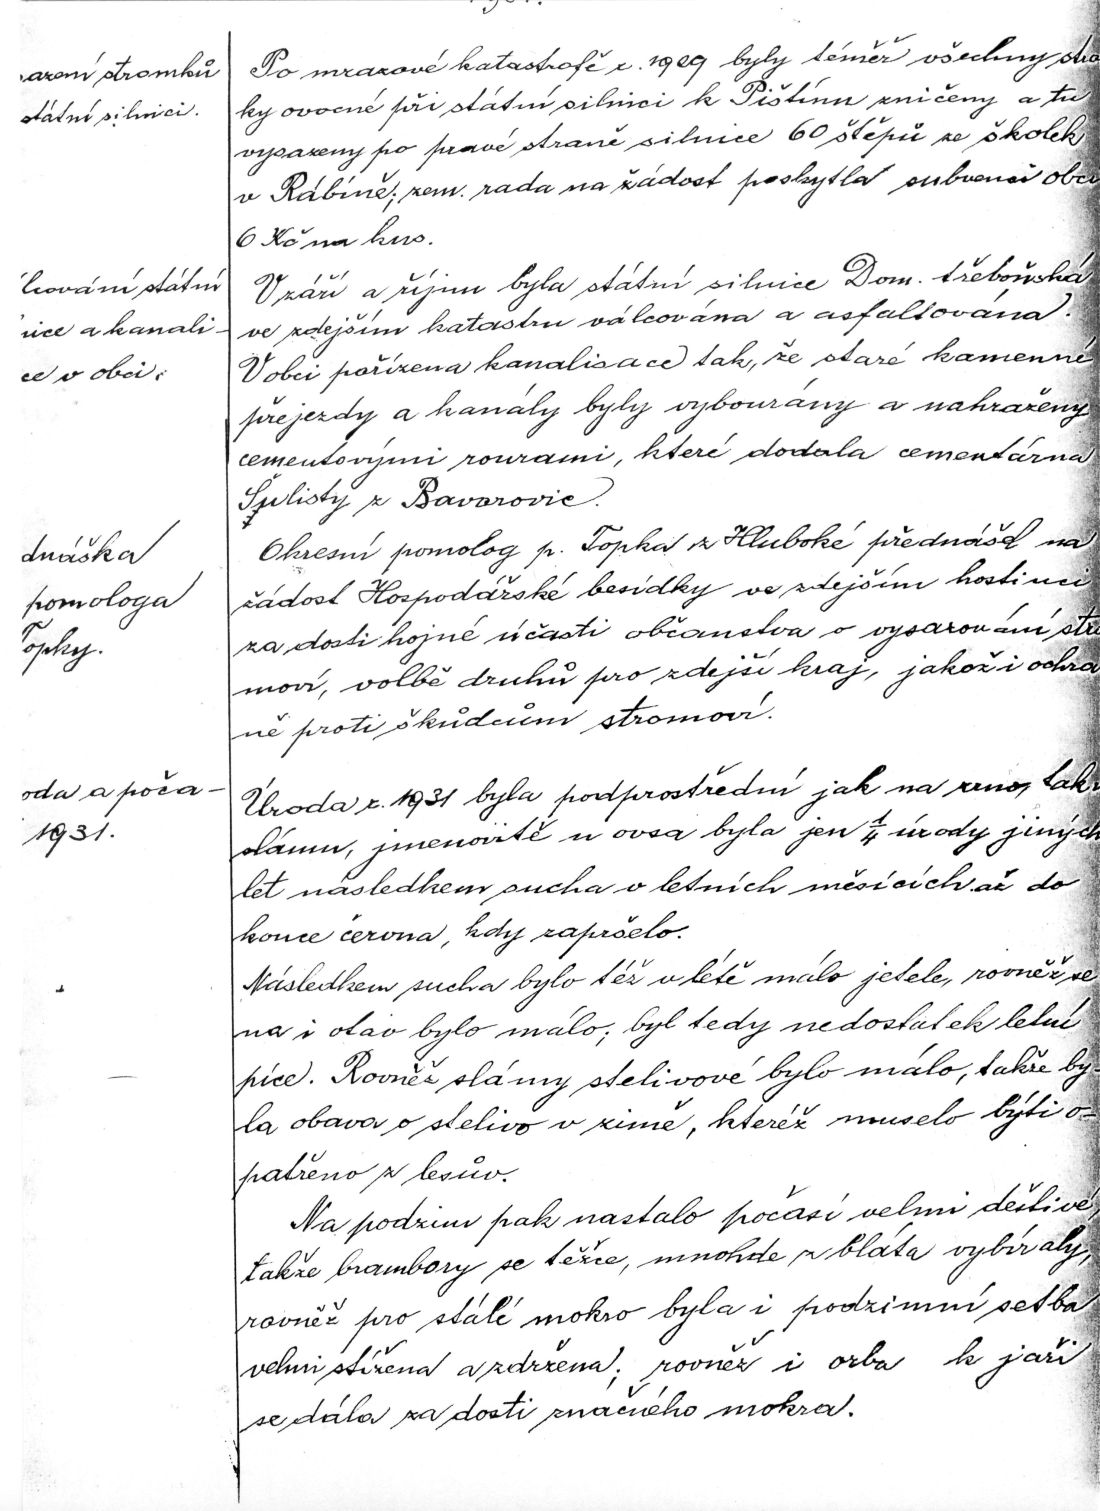 1931.
sazení stromků
státní silnici.
Po mrazové katastrofě r. 1929 byly téměř všechny stro
ky ovocné při státní silnici k Pištínu zničeny a tu
vysazeny po pravé straně silnice 60 štěpů ze školek
v Rábíně; zem. rada na žádost poskytla subvenci obci
6 Kč na kus.
lcování státní
nice a kanali-
ce v obci.
V září a říjnu byla státní silnice Dom. třeboňská
ve zdejším katastru válcována a asfaltována.
V obci pořízena kanalisace tak, že staré kamenné
přejezdy a kanály byly vybourány a nahraženy
cementovými rourami, které dodala cementárna
Šulisty z Bavorovic.
dnáška
pomologa
Topky.
Okresní pomolog p. Topka z Hluboké přednášel na
žádost Hospodářské besídky ve zdejším hostinci
za dosti hojné účasti občanstva o vysazování stro
moví, volbě druhů pro zdejší kraj, jakož i ochra
ně proti škůdcům stromoví.
oda a poča-
1931.
Úroda r. 1931 byla podprostřední jak na zrno, tak i
slámu, jmenovitě u ovsa byla jen 1/4 úrody jiných
let následkem sucha v letních měsících až do
konce června, kdy zapršelo.
Následkem sucha bylo též v létě málo jetele, rovněž se
na i otav bylo málo; byl tedy nedostatek letní
píce. Rovněž slámy stelivové bylo málo, takže by-
la obava o stelivo v zimě, kteréž muselo býti o-
patřeno z lesův.
Na podzim pak nastalo počasí velmi deštivé,
takže brambory se těžce, mnohde z bláta vybíraly,
rovněž pro stálé mokro byla i podzimní setba
velmi stížena a zdržena; rovněž i orba k jaři
se dála za dosti značného mokra.